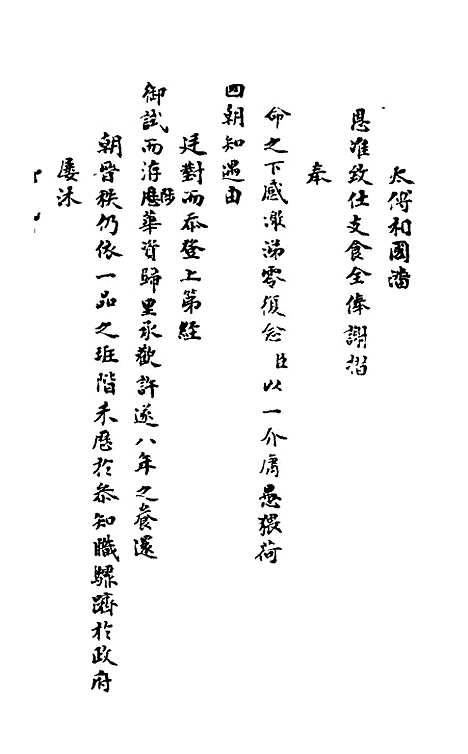 太傅和國潘
恩准致仕支食全俸謝摺
奉
命之下感激涕零復念臣以一介庸愚猥荷
四朝知遇由
廷對而忝登上第經
御試而洊陟歷華資歸里承歡許遂八年之養還
朝晉秩仍依一品之班階未歷於參知職驟躋於政府
屢沐